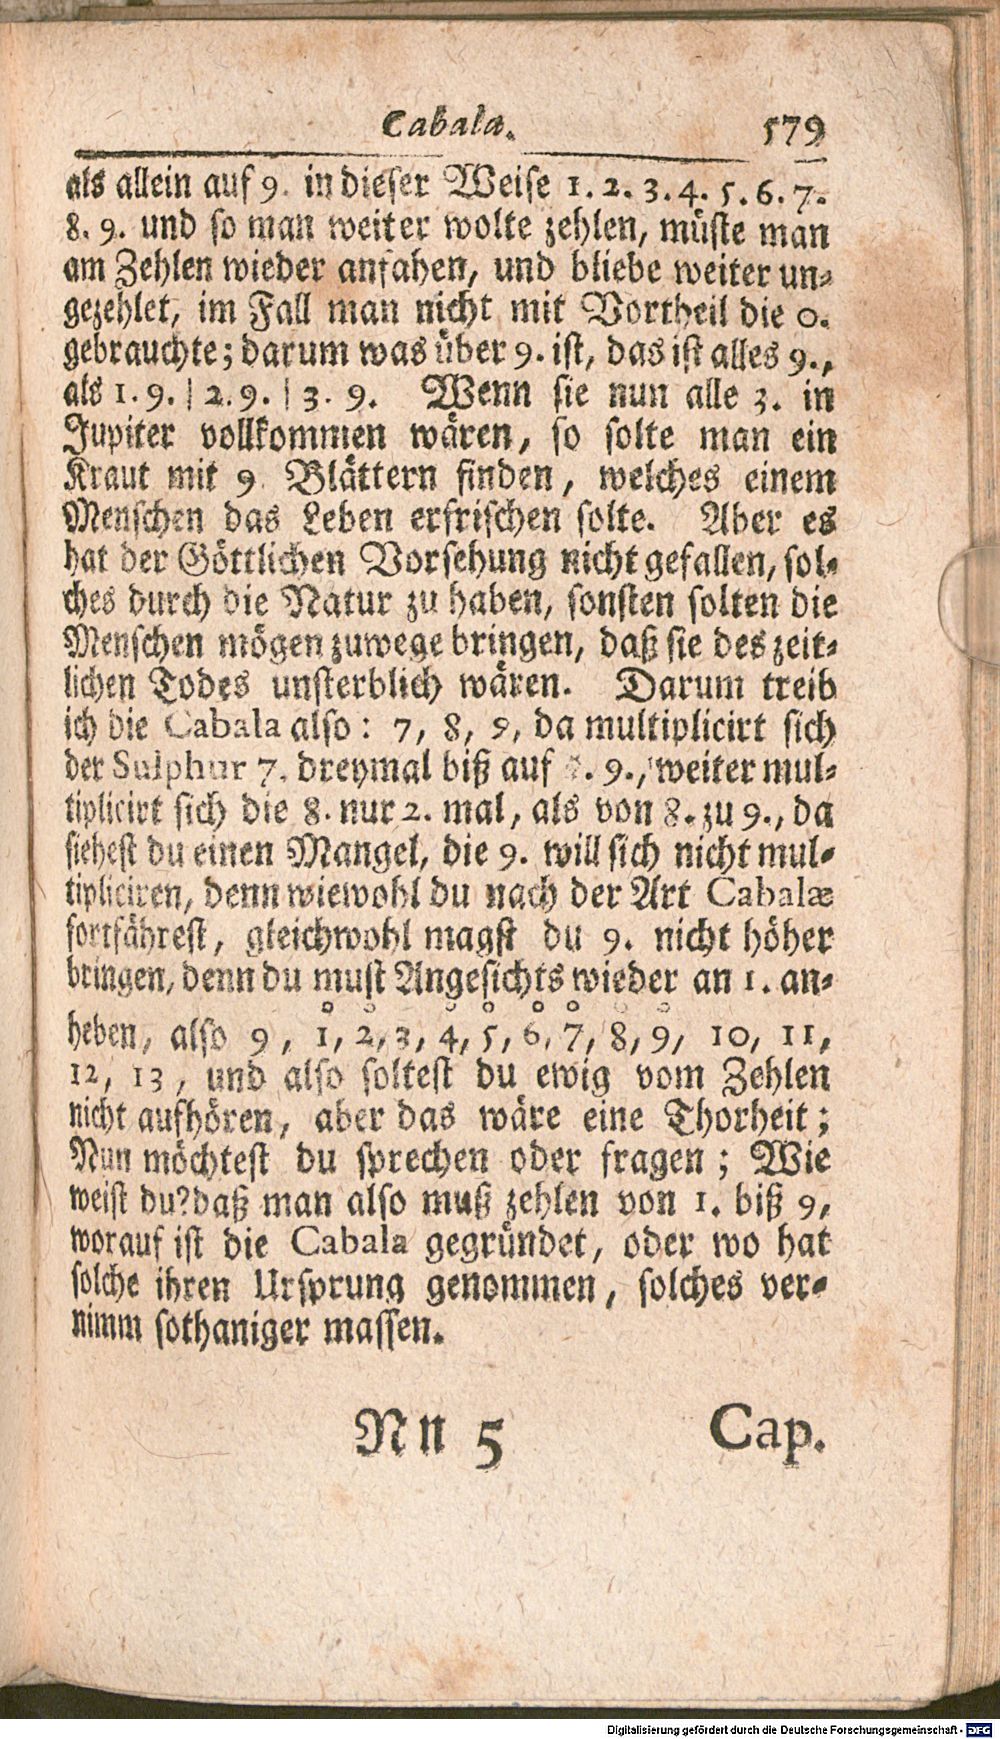 Cabala. 579
als allein auf 9. in dieser Weise 1. 2. 3. 4. 5. 6. 7.
8. 9. und so man weiter wolte zehlen, müste man
am Zehlen wieder anfahen, und bliebe weiter un-
gezehlet, im Fall man nicht mit Vortheil die 0.
gebrauchte; darum was über 9. ist, das ist alles 9.,
als 1. 9. | 2. 9. | 3. 9. Wenn sie nun alle 3. in
Jupiter vollkommen wären, so solte man ein
Kraut mit 9. Blättern finden, welches einem
Menschen das Leben erfrischen solte. Aber es
hat der Göttlichen Vorsehung nicht gefallen, sol-
ches durch die Natur zu haben, sonsten solten die
Menschen mögen zuwege bringen, daß sie des zeit-
lichen Todes unsterblich wären. Darum treib
ich die Cabala also: 7, 8, 9, da multiplicirt sich
der Sulphur 7. dreymal biß auf 9., weiter mul-
tiplicirt sich die 8. nur 2. mal, als von 8. zu 9., da
siehest du einen Mangel, die 9. will sich nicht mul-
tipliciren, denn wiewohl du nach der Art Cabalæ
fortfährest, gleichwohl magst du 9. nicht höher
bringen, denn du must Angesichts wieder an 1. an-
o o o o o o o o
heben, also 9, 1, 2, 3, 4, 5, 6, 7, 8, 9, 10, 11,
12, 13, und also soltest du ewig vom Zehlen
nicht aufhören, aber das wäre eine Thorheit;
Nun möchtest du sprechen oder fragen; Wie
weist du? daß man also muß zehlen von 1. biß 9,
worauf ist die Cabala gegründet, oder wo hat
solche ihren Ursprung genommen, solches ver-
nimm sothaniger massen.
Nn 5 Cap.
Digitalisierung gefördert durch die Deutsche Forschungsgemeinschaft - DFG